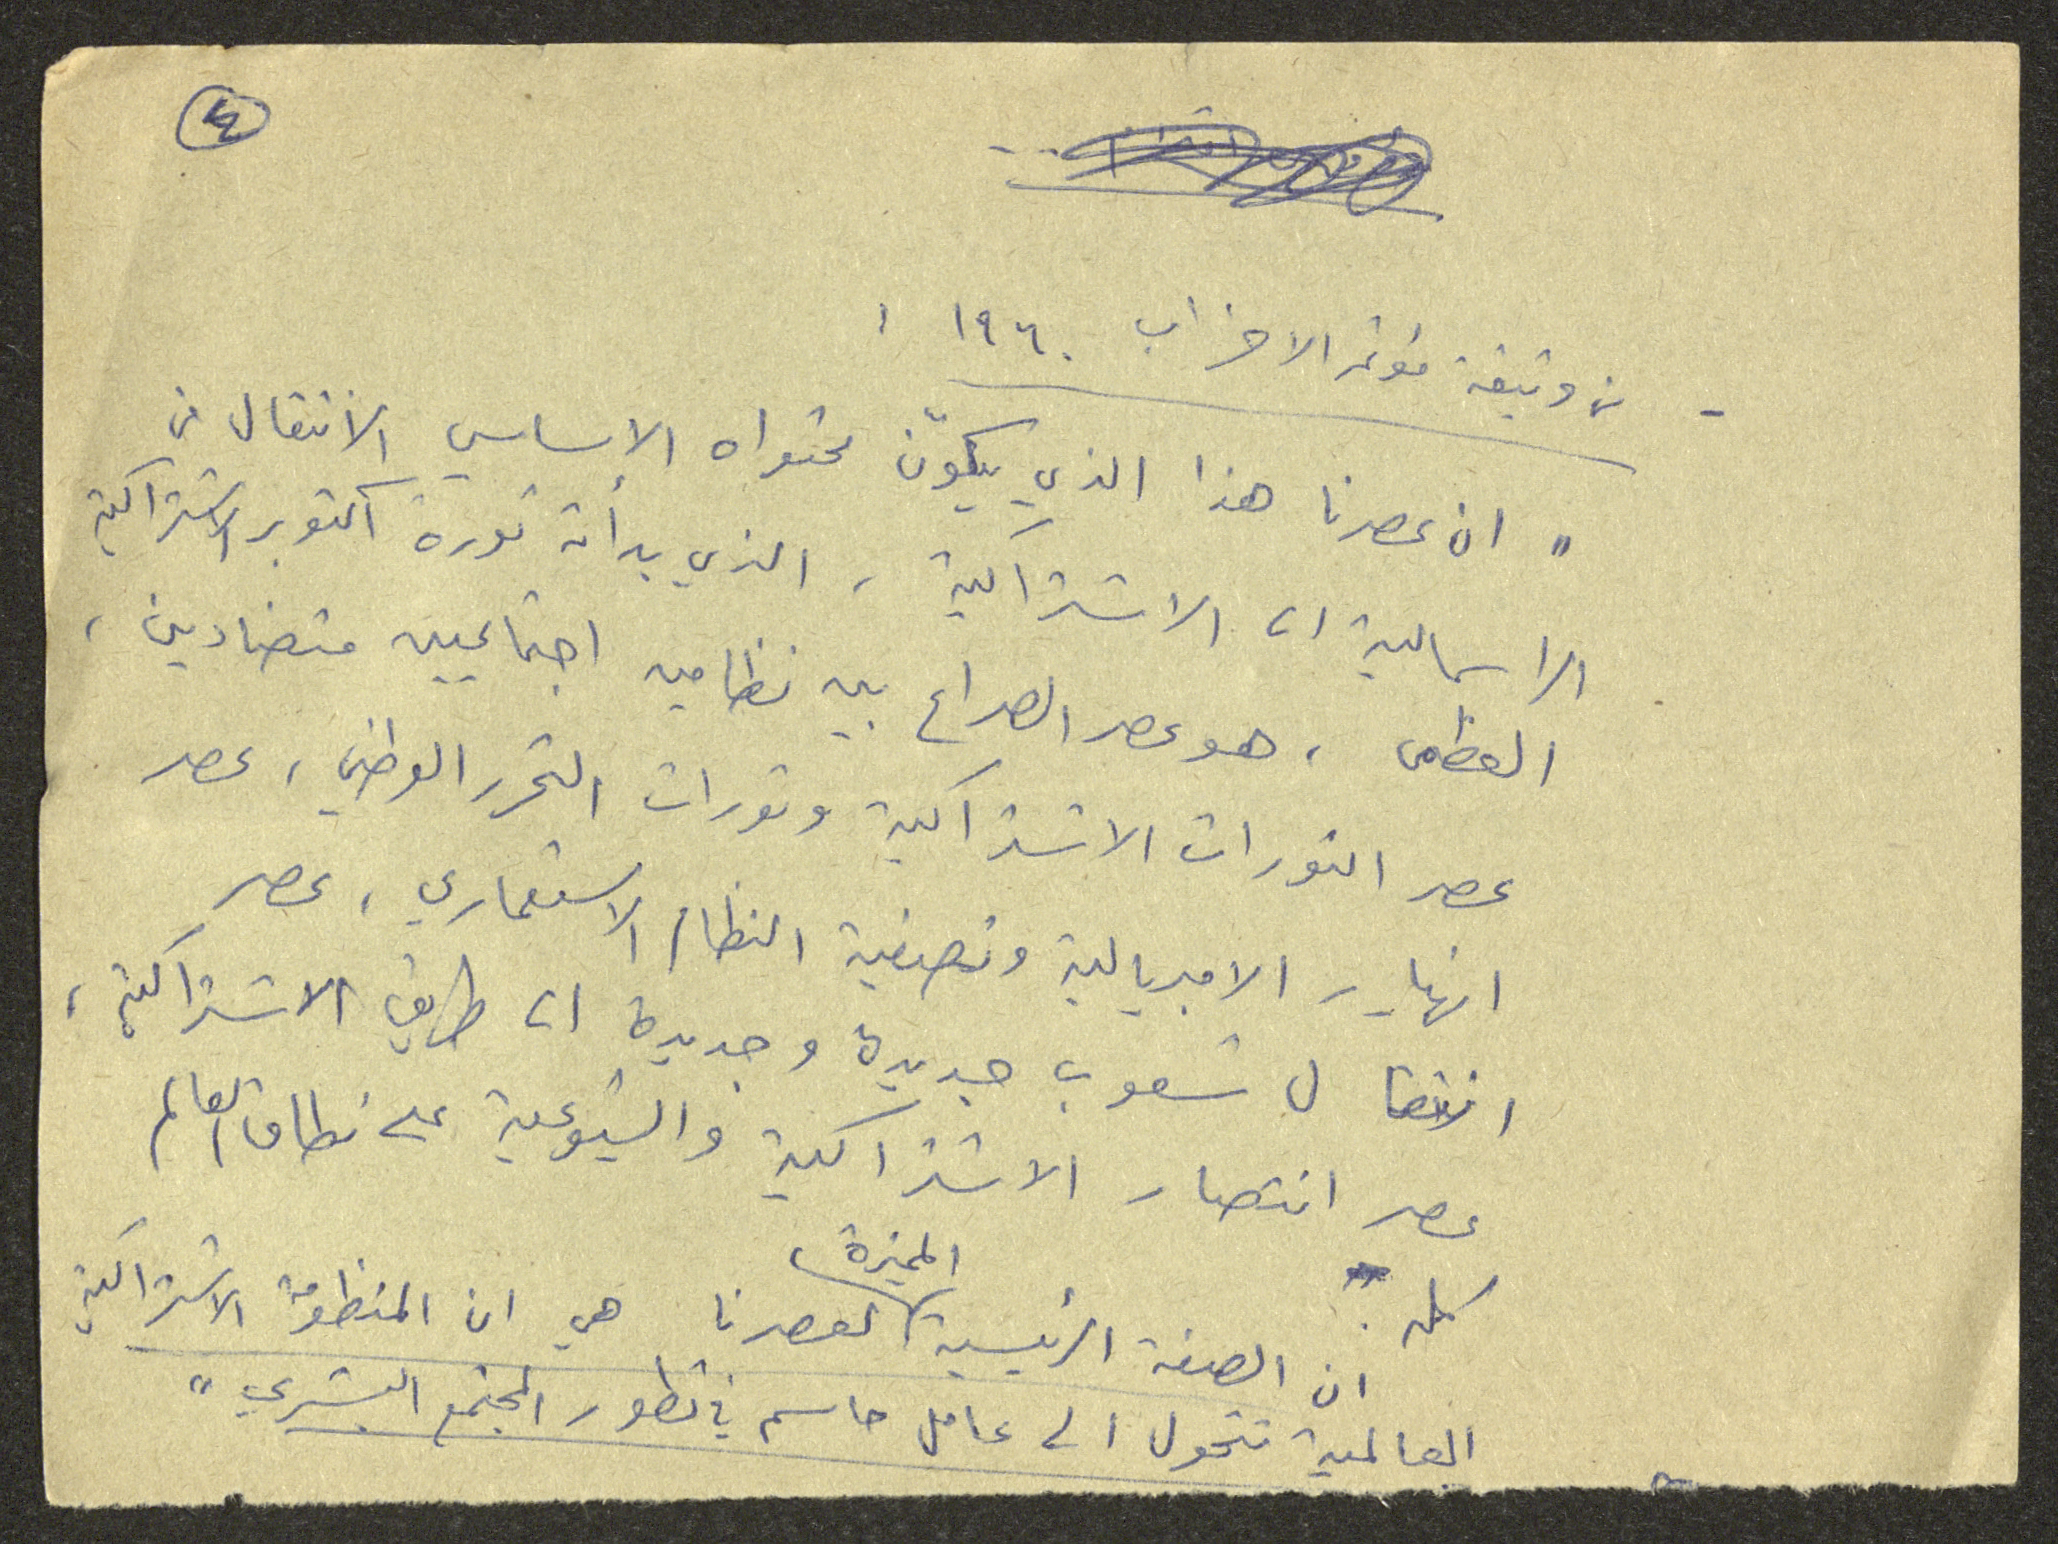 ٤
- من وثيقة مؤتمر الاحزاب ١٩٦٠ :
" ان عصرنا هذا الذي يكوّن محتواه الاساسي الانتقال من
الراسمالية الى الاشتراكية ، الذي بدأته ثورة اكتوبر الاشتراكية
العظمى ، هو عصر الصراع بين نظامين اجتماعيين متضادين ،
عصر الثورات الاشتراكية وثورات التحرر الوطني ، عصر
انهيار الامبريالية وتصفية النظام الاستعماري ، عصر
انتقال شعوب جديدة وجديدة الى طريق الاشتراكية ،
عصر انتصار الاشتراكية والشيوعية على نطاق العالم
كله .
ان الصفة الرئيسية المميزة لعصرنا هي ان المنظومة الاشتراكية
العالمية تتحول الى عامل حاسم في تطور المجتمع البشري "